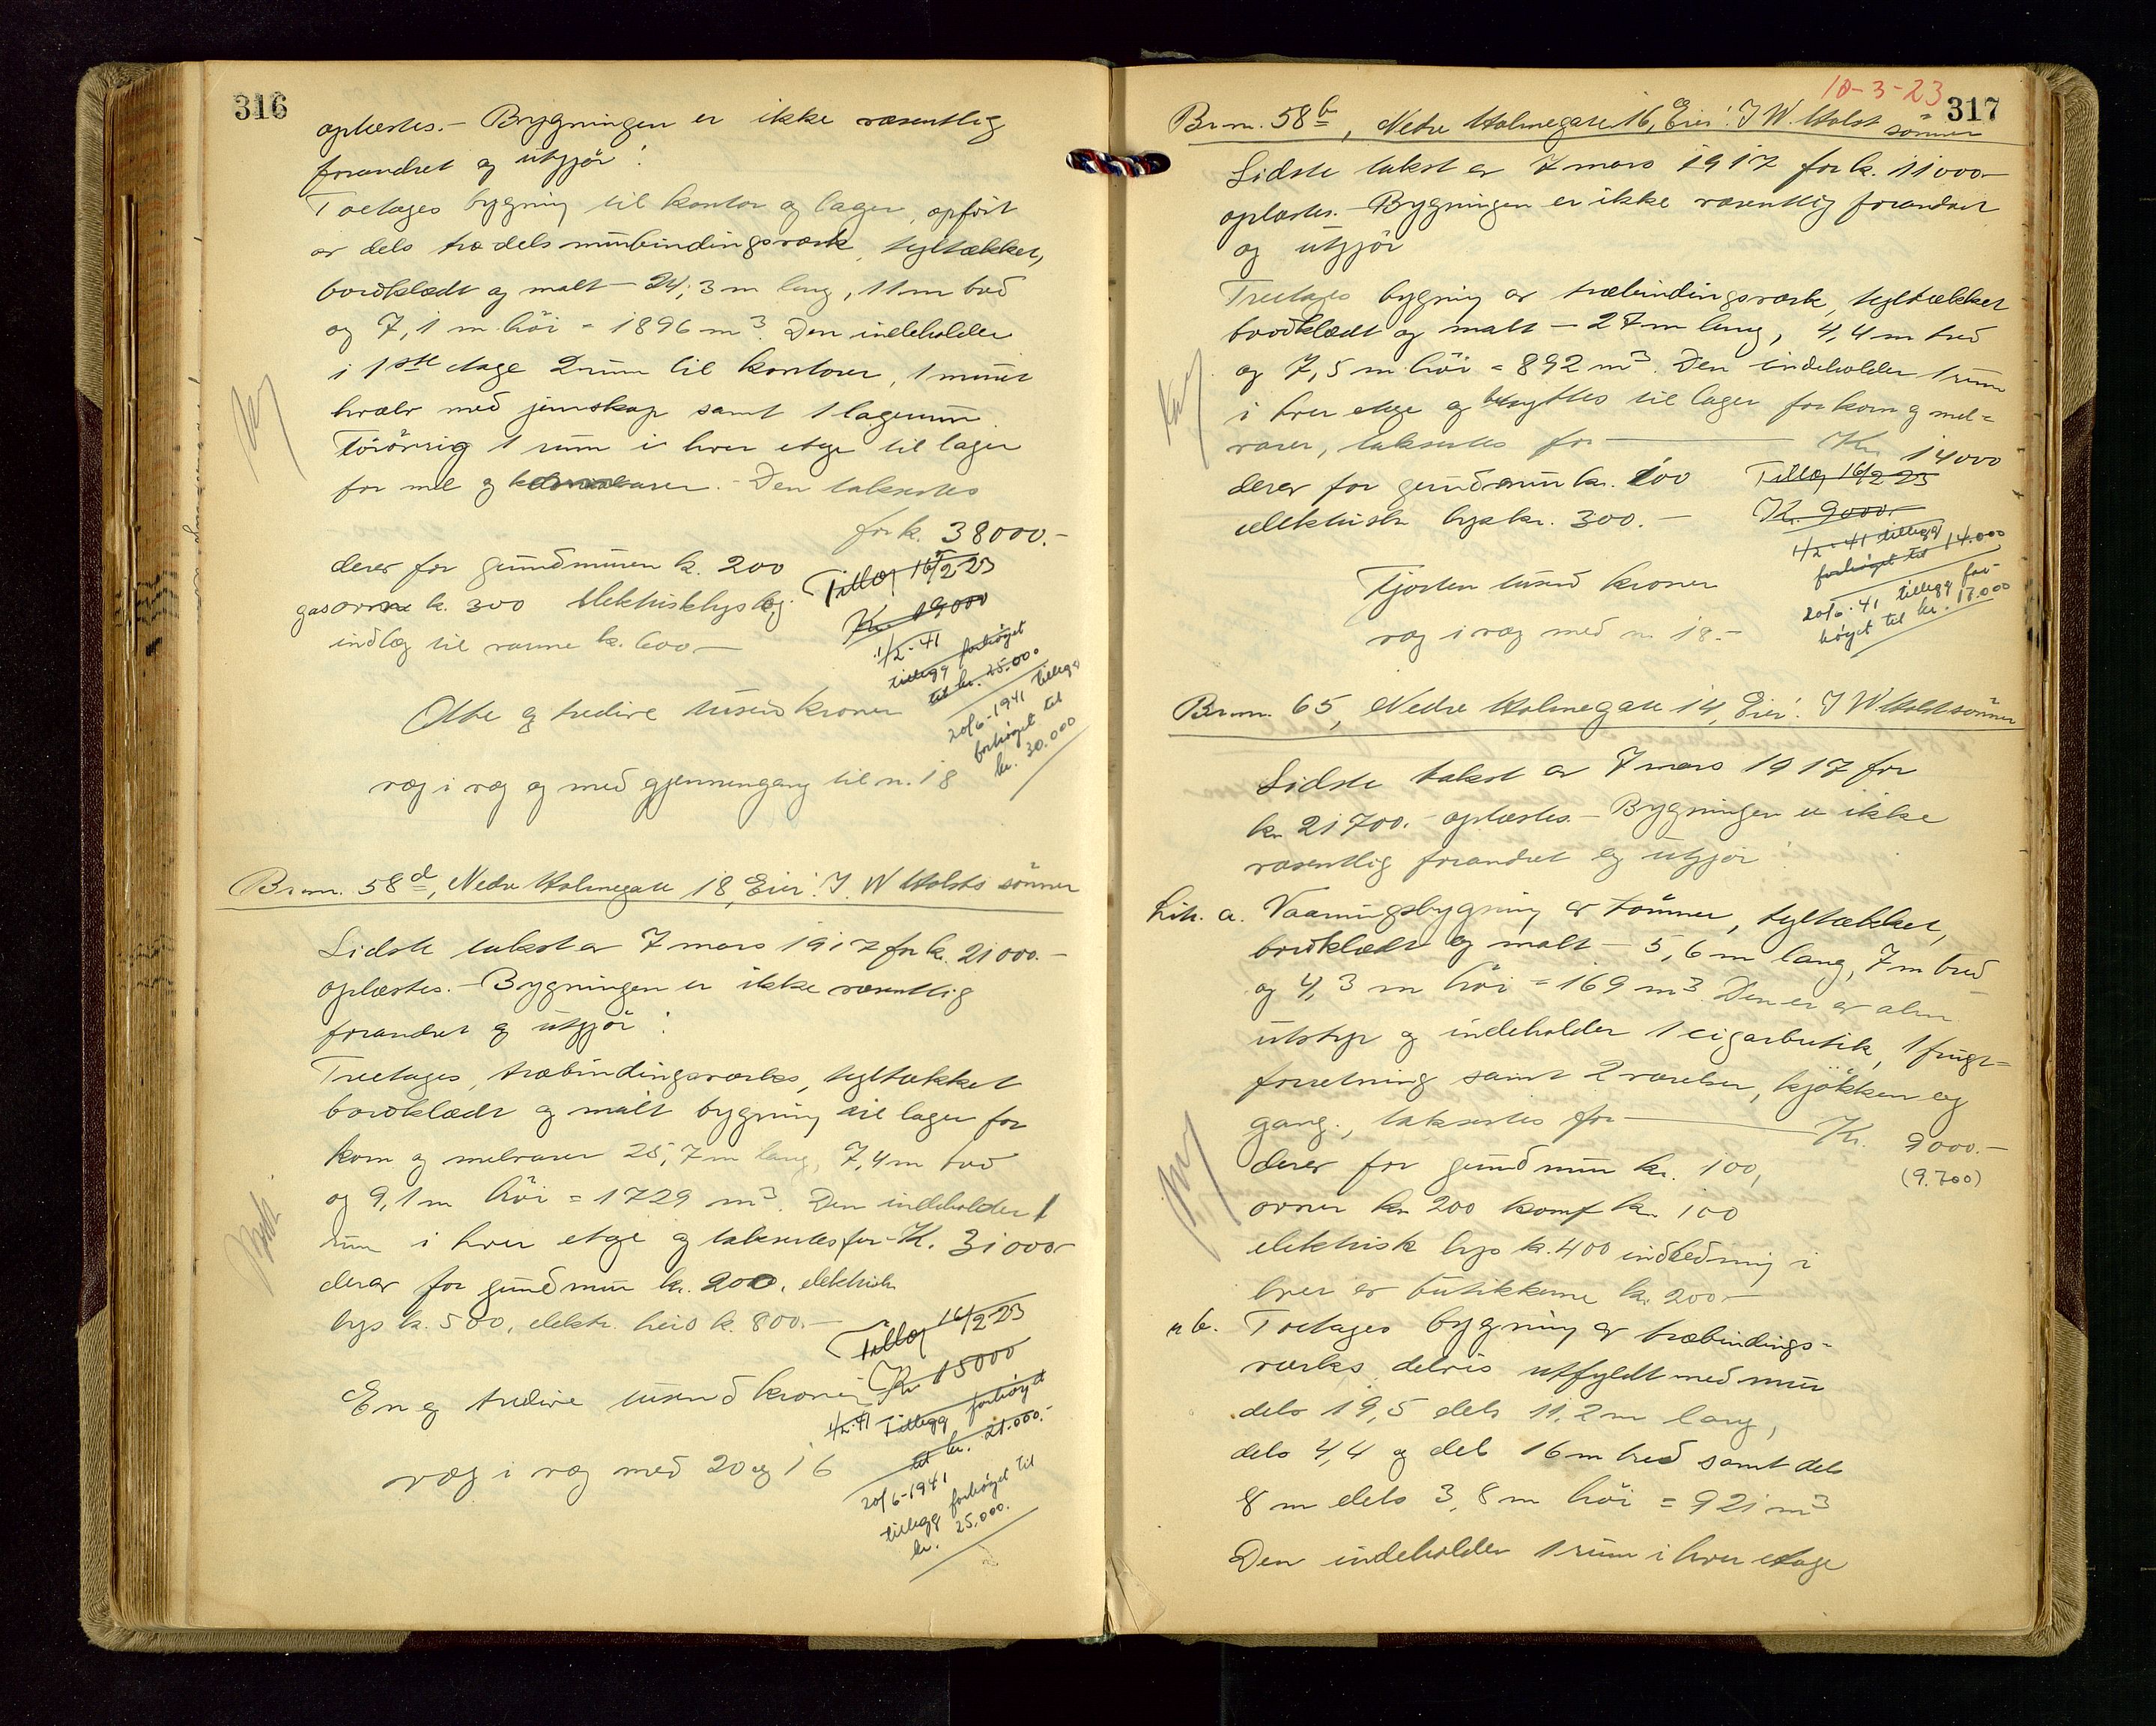 316
oplæstes. - Bygningen er ikke væsentlig
forandret og utgjör:
Toetages bygning til kontor og lager, opfört
av dels træ dels murbindingsværk, tegltækket,
bordklædt og malt - 24,3 m lang, 11 m bred
og 7,1 m höi = 1896 m³. Den indeholder
i 1ste etage 2 rum til kontorer, 1 muret
hvælv med jernskap samt 1 lagerrum.
Forövrig 1 rum i hver etage til lager
for mel og varer. - Den takseres
for k. 38000.-
derav for grundmuren k. 200
gasovne k. 300 elektrisk lys og
indlæg til varme k. 600 -
Tillæg 16/2 23
Kr. 19000
1/2-41
tillegg forhöyet
til kr. 25.000
20/6-1941 tillegg
forhöyet til
kr. 30.000
Otte og tredive tusend kroner
væg i væg og med gjennemgang til n. 18
Br.nr. 58d, Nedre Holmegate 18, Eier: J. W Holsts sönner
Sidste takst av 7 mars 1917 for k. 21000.-
oplæstes. - Bygningen er ikke væsentlig
forandret og utgjör:
Treetages, træbindingsverks, tegltækket
bordklædt og malt bygning til lager for
korn og melvarer 25,7 m lang, 7,4 m bred
og 9,1 m höi = 1729 m³. Den indeholder 1
rum i hver etage og takseres for - K. 31000-
derav for grundmur kr. 200, elektrisk
lys k. 500, elektr. heis k. 800.-
Tillæg 16/2 23
Kr 15000
1/2-41 Tillegg forhöyet
til kr. 21.000.-
20/6-1941
tillegg forhöyet til
kr. 25.000.
En og tredive tusend kroner
væg i væg med 20 og 16
10-3-23
317
Br.nr. 58b, Nedre Holmegate 16, Eier: J W. Holst sönner
Sidste takst av 7 mars 1917 for k. 11000-
oplæstes. - Bygningen er ikke væsentlig forandret
og utgjör
Treetages bygning av træbindingsværk, tegltækket
bordklædt og malt - 27 m lang, 4,4 m bred
og 7,5 m höi = 892 m³. Den indeholder 1 rum
i hver etage og benyttes til lager for korn og mel=
varer, takseres for - Kr. 14000
derav for grundmur kr. 100
elektrisk lys kr. 300.-
Tillæg 16/2 23
K. 9000.-
1/2-41 tillegg
forhöyet til 14.000
20/6-41 tillegg for-
höyet til kr. 17.000
Fjorten tusend kroner
væg i væg med n. 18.-
Br.nr. 65, Nedre Holmegate 14, Eier: J W. Holst sönner
Sidste takst av 7 mars 1917 for
kr 21700.- oplæstes. - Bygningen er ikke
væsentlig forandret og utgjör:
Lit. a. Vaaningsbygning av tömmer, tegltækket,
bordklædt og malt - 5,6 m lang, 7 m bred
og 4,3 m höi = 169 m³. Den er av alm
utstyr og indeholder 1 cigarbutik, 1 frugt=
forretning samt 2 værelser, kjökken og
gang., takseres for - Kr. 9000.-
(9.700)
derav for grundmur kr. 100,
ovner kr 200 komf kr. 100
elektrisk lys k. 400 indredning i
hver av butikkerne kr. 200.-
" b. Toetages bygning av træbindings-
værks, delvis utfyldt med mur
dels 19,5 dels 11,2 m lang,
dels 4,4 og dels 16 m bred samt dels
8 m dels 3,8 m höi = 921 m³
Den indeholder 1 rum i hver etage